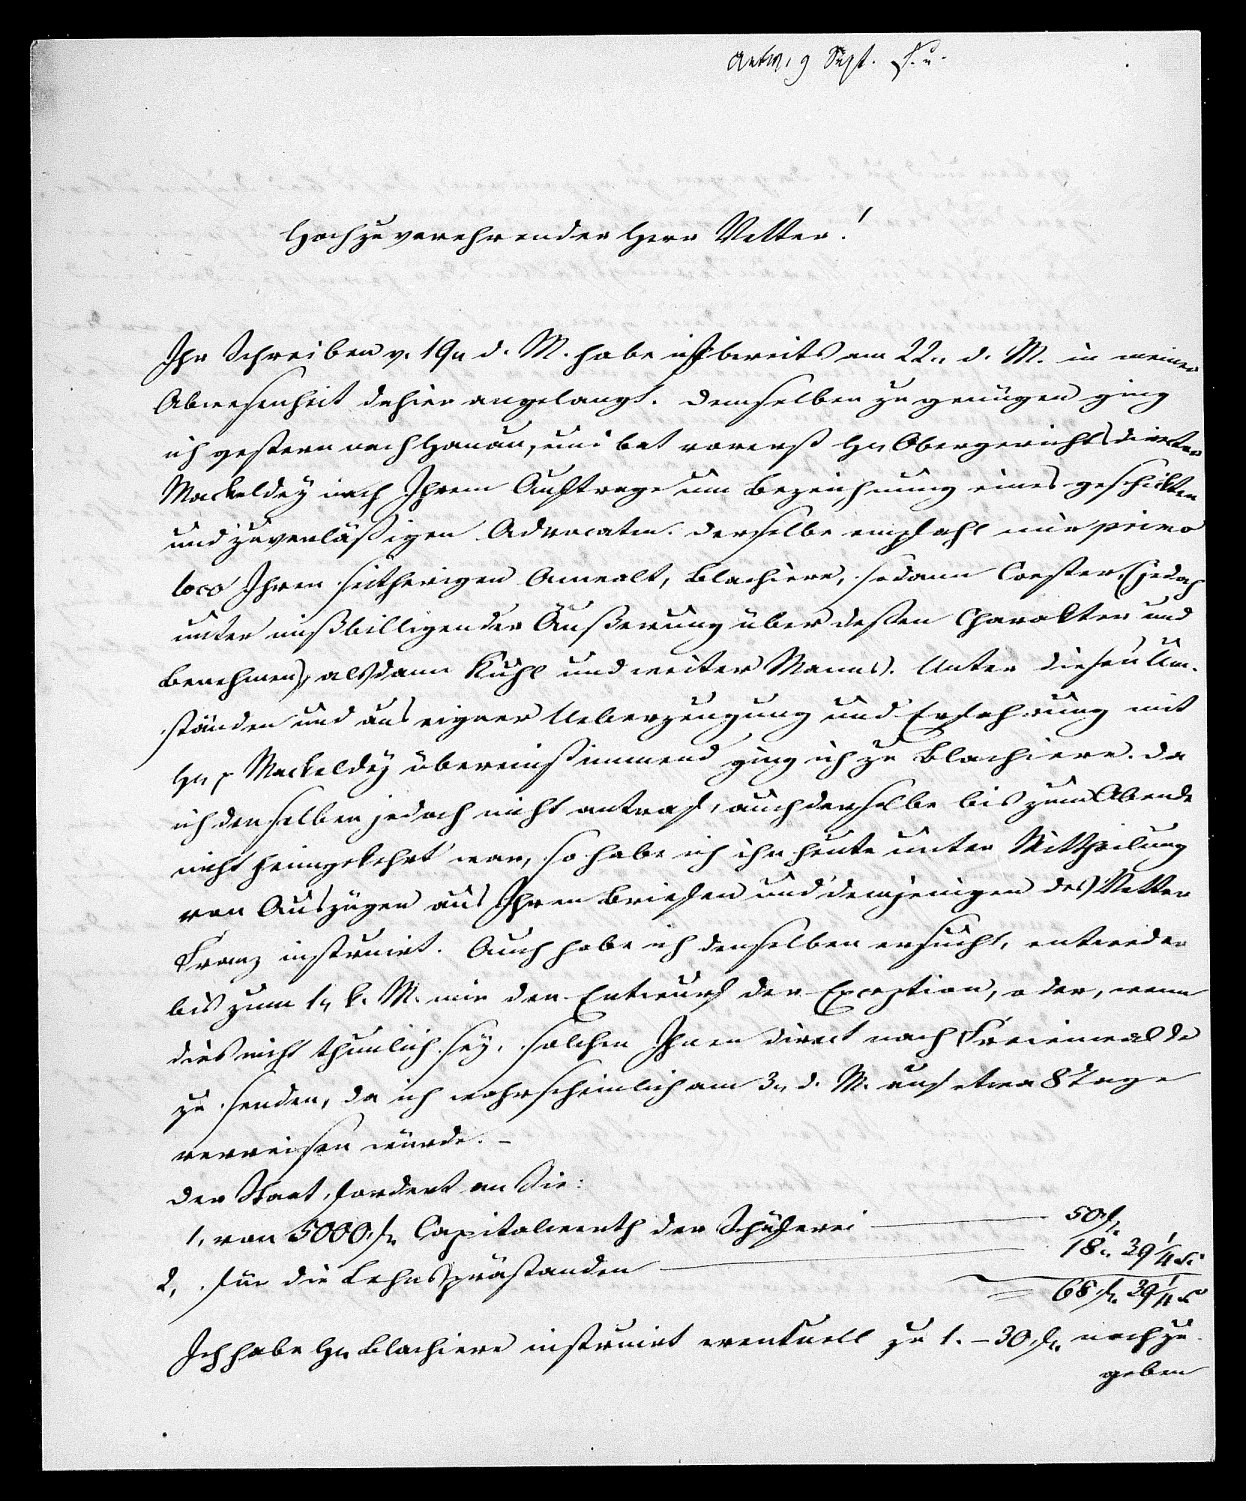 Antw. 9 Sept.
Hochzuverehrender Herr Vetter!
Ihr Schreiben v. 19n d. M. habe ich bereits am 22n d. M. in meiner
Abwesenheit dahier angelangt. Demselben zu genügen ging
ich gestern nach Hanau, und bat vorerst Hn Obergerichtsdirector
Mackeldey nach Ihrem Auftrage um Bezeichnung eines geschickten
und zuverläßigen Advocaten. Derselbe empfahl mir primo
loco Ihren seitherigen Anwalt, Blachiere, sodann Coester, (jedoch
unter mißbilligender Äußerung über deßen Charakter und
Benehmen), alsdann Kuhl und weiter Manns. Unter diesen Um-
ständen und aus eigner Ueberzeugung und Erfahrung mit
Hn p Mackeldey übereinstimmend ging ich zu Blachiere. Da
ich denselben jedoch nicht antraf, auch derselbe bis zum Abende
nicht heimgekehrt war, so habe ich ihn heute unter Mittheilung
von Auszügen aus Ihren Briefen und demjenigen des Vetter
Franz instruirt. Auch habe ich denselben ersucht, entweder
bis zum 1n k. M. mir den Entwurf der Exception, oder, wenn
dies nicht thunlich sey, solchen Ihnen direct nach Freienwalde
zu senden, da ich wahrscheinlich am 3n d. M. auf etwa 8 Tage
verreisen würde. –
Der Staat fordert an Sie:
1, von 5000 fl. Capitalwerth der Schäferei — 50 fl.
2, für die Lehnspraestanden — 18 „ 39 1/4
68 fl. 39 1/4
Ich habe Hn Blachiere instruirt eventuell zu 1. – 30 fl. nachzu-
geben